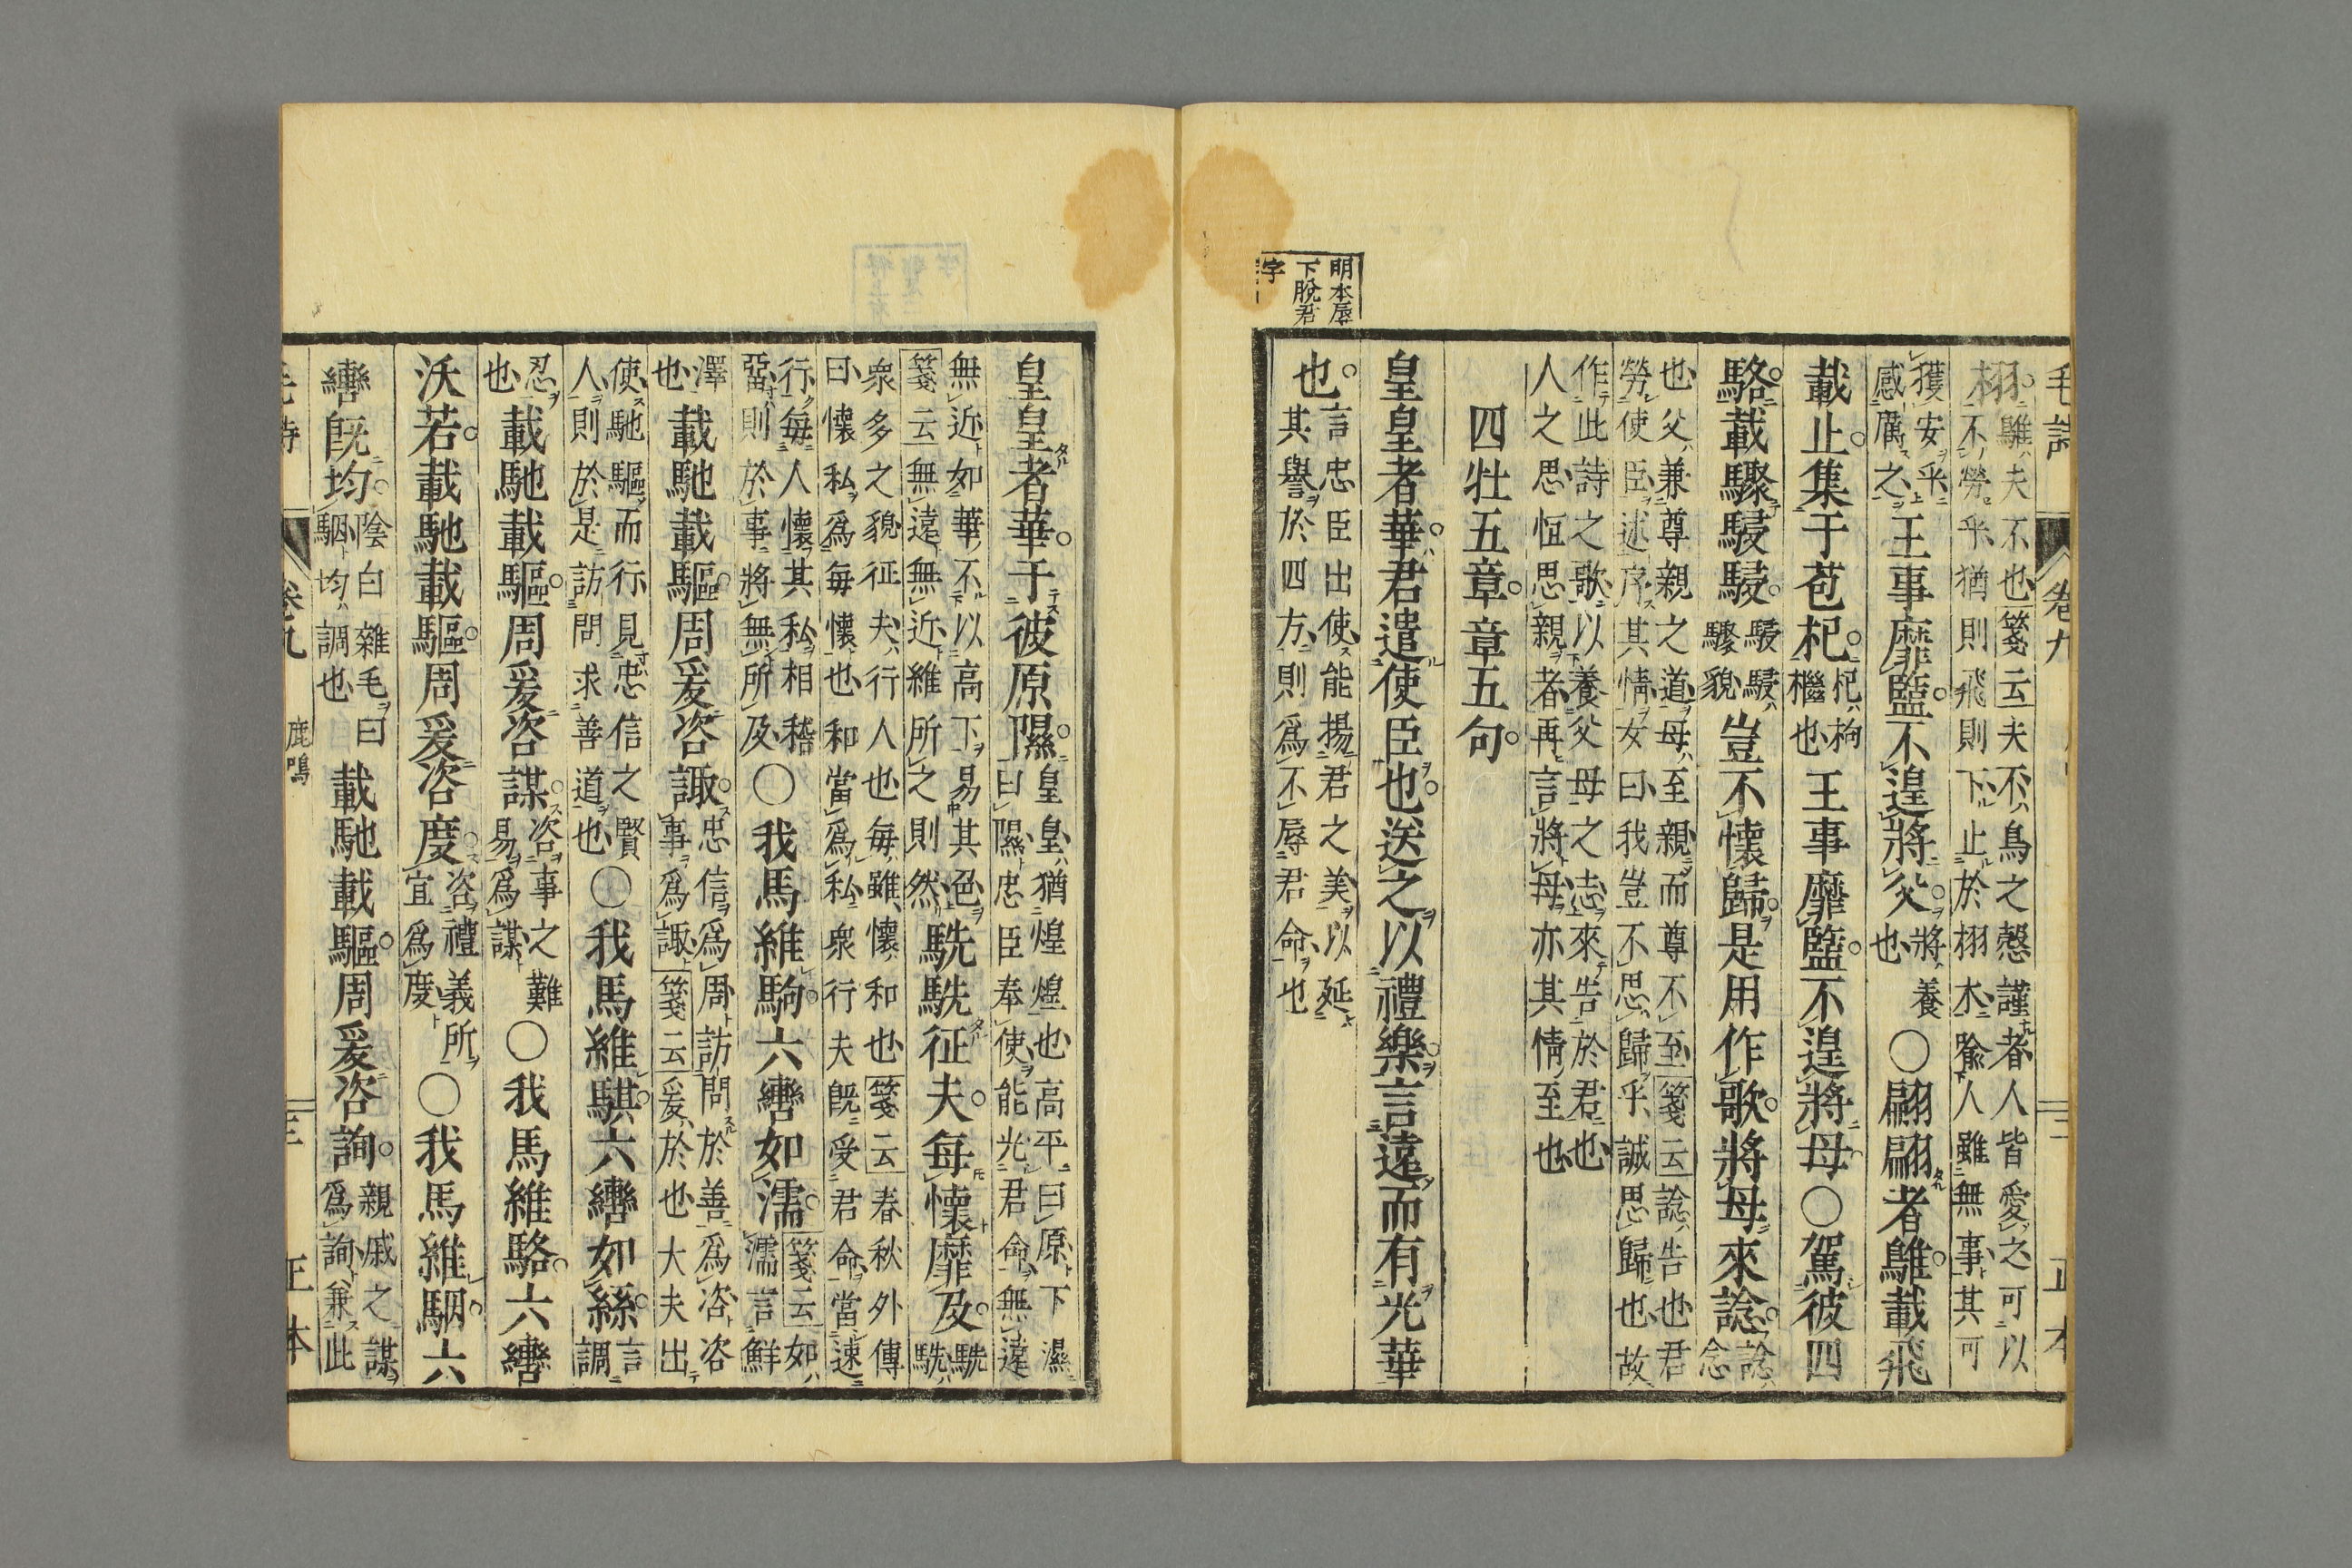 毛詩 卷九 三 正本
栩鵻夫不也箋云夫不鳥之愨謹者人皆愛之可以
不勞乎猶則飛則下止於栩木喩人雖無事其可
獲安乎感厲之王事靡盬不遑將父將養也○翩翩者鵻載飛
載止集于苞杞杞枸檵也王事靡盬不遑將母○駕彼四
駱載驟駸駸駸駸驟貌豈不懷歸是用作歌將母來諗諗念
也父兼尊親之道母至親而尊不至箋云諗告也君
勞使臣述序其情女曰我豈不思歸乎誠思歸也故
作此詩之歌以養父母之志來告於君也
人之思恆思親者再言將母亦其情至也
四牡五章章五句
皇皇者華君遣使臣也送之以禮樂言遠而有光華
也言忠臣出使能揚君之美以延
其譽於四方則爲不辱君命也
明本辱
下脫君
字
皇皇者華于彼原隰皇皇猶煌煌也高平曰原下濕
曰隰忠臣奉使能光君命無遠
無近如華不以高下易其色駪駪征夫每懷靡及駪駪
箋云無遠無近維所之則然
衆多之貌征夫行人也每雖懷和也箋云春秋外傳
曰懷私爲每懷也和當爲私衆行夫旣受君命當速
行每人懷其私相稽
當則於事將無所及○我馬維駒六轡如濡箋云如濡言鮮
澤也載馳載驅周爰咨諏忠信爲周訪問於善爲咨咨
事爲諏箋云爰於也大夫出
使馳驅而行見忠信之賢
人則於是訪問求善道也○我馬維騏六轡如絲言調
忍也載馳載驅周爰咨謀咨事之難易爲謀○我馬維駱六轡
沃若載馳載驅周爰咨度咨禮義所宜爲度○我馬維駰六
轡旣均陰白雜毛曰駰均調也載馳載驅周爰咨詢親戚之謀爲詢兼此
毛詩 卷九 鹿鳴 三 正本